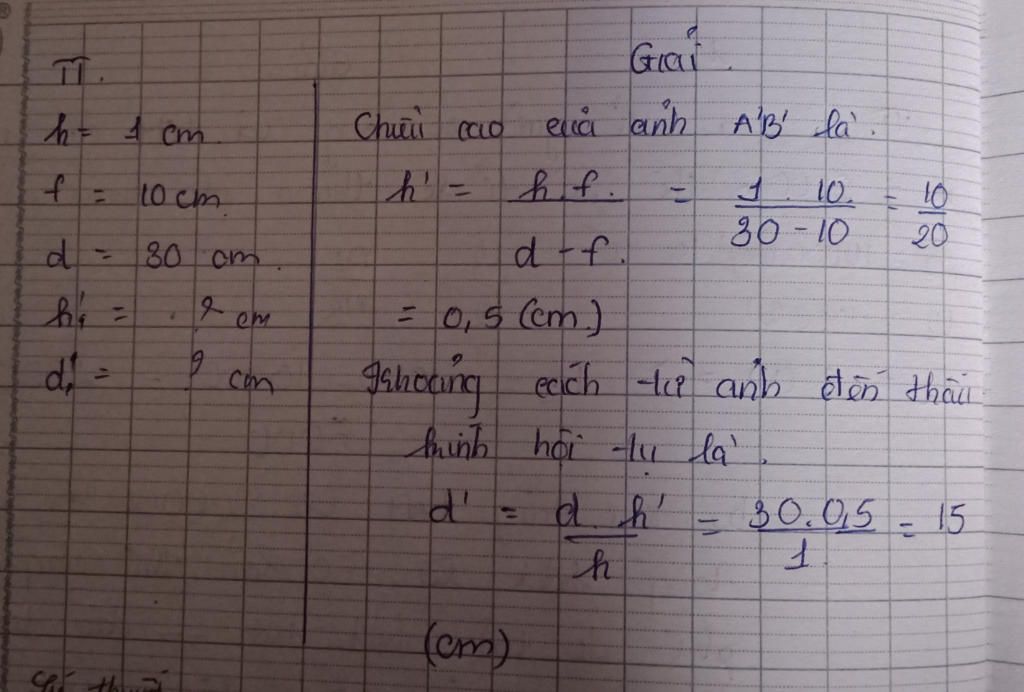 TT.
h = 1 cm
f = 10 cm.
d = 30 cm.
h' = ? cm
d' = ? cm
Giải.
Chiều cao của ảnh A'B' là.
h' = h f. / d - f. = 1 . 10. / 30 - 10 = 10 / 20
= 0,5 (cm.)
Khoảng cách từ ảnh đến thấu
kính hội tụ là.
d' = d. h' / h = 30. 0,5 / 1 = 15
(cm)